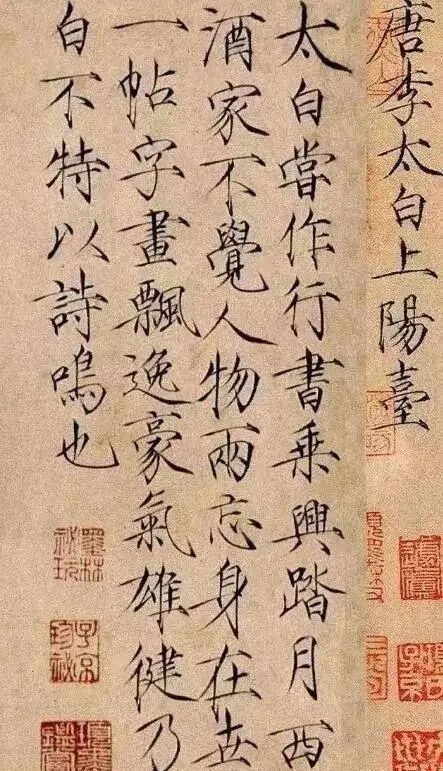 唐李太白上陽臺
太白嘗作行書乘興踏月西
酒家不覺人物兩忘身在世
一帖字畫飄逸豪氣雄健乃
白不特以詩鳴也
墨林
祕玩
子京
珍祕